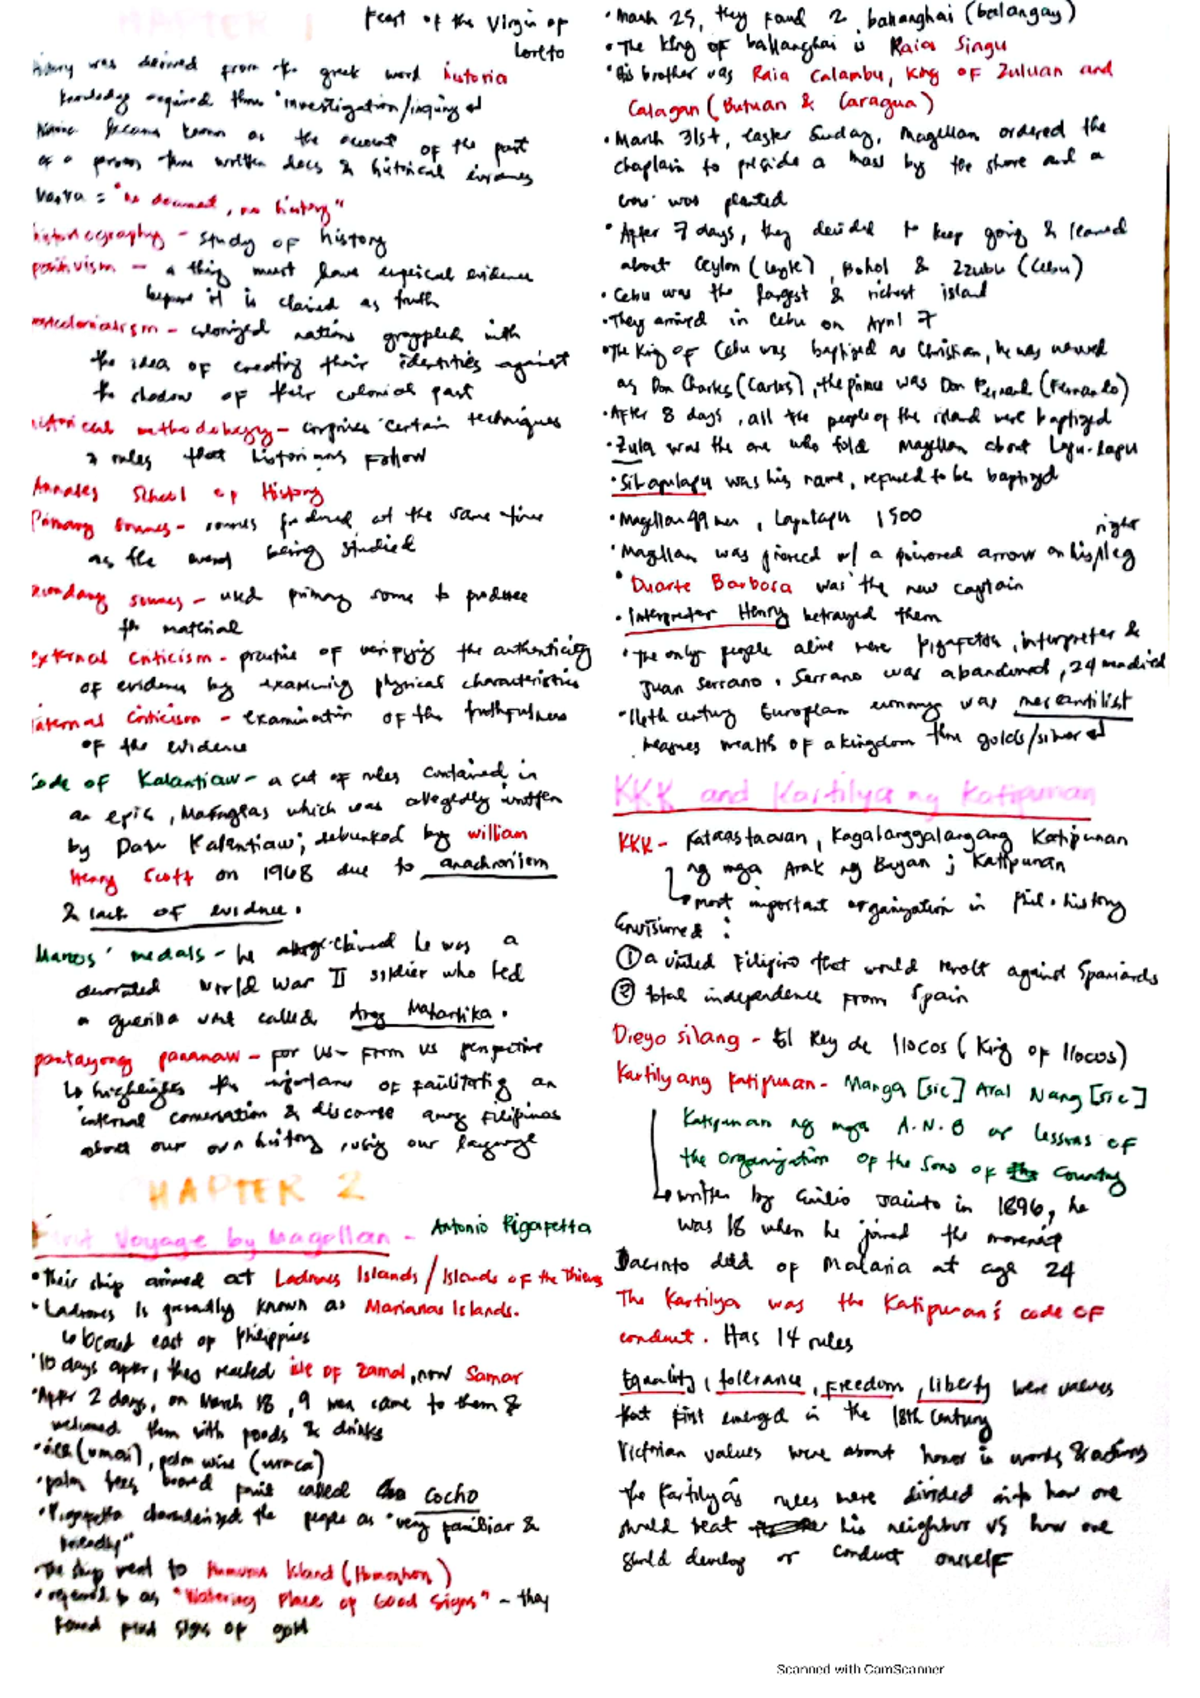 CHAPTER 1
Feast of the Virgin of
Loreto
was derived from the greek word historia
knowledge acquired thru "investigation/inquiry"
became known as the account of the past
of a person thru written docs & historical evidences
= "no document, no history"
historiography - study of history
positivism - a thing must have empirical evidence
before it is claimed as truth
postcolonialism - colonized nations grappled with
the idea of creating their identities against
the shadow of their colonial past
historical methodology - comprises certain techniques
& rules that historians follow
Annales School of History
Primary sources - sources produced at the same time
as the event being studied
secondary sources - used primary source to produce
the material
external criticism - practice of verifying the authenticity
of evidence by examining physical characteristics
internal criticism - examination of the truthfulness
of the evidence
Code of Kalantiaw - a set of rules contained in
an epic, Maragtas which was allegedly written
by Datu Kalantiaw; debunked by william
Henry Scott on 1968 due to anachronism
& lack of evidence.
Marcos' medals - he claimed he was a
decorated World War II soldier who led
a guerilla unit called Ang Maharlika.
pantayong pananaw - for us - from us perspective
highlights the importance of facilitating an
internal conversation & discourse among Filipinos
about our own history, using our language
HAPTER 2
First Voyage by Magellan - Antonio Pigafetta
• Their ship arrived at Ladrones Islands / Islands of the Thieves
• Ladrones is presently known as Marianas Islands.
located east of Philippines
• 10 days after, they reached isle of Zamal, now Samar
• After 2 days, on March 18, 9 men came to them &
welcomed them with foods & drinks
• rice (umai), palm wine (uraca)
• palm trees beared fruit called cocho
• Pigafetta characterized the people as "very familiar &
friendly"
• The ship went to Humunu Island (Homonhon)
• referred to as "Watering Place of Good Signs" - they
found first signs of gold
• March 25, they found 2 balanghai (balangay)
• The King of balanghai is Raia Singu
• His brother was Raia Calambu, King of Zuluan and
Calagan (Butuan & Caragua)
• March 31st, Easter Sunday, Magellan ordered the
chaplain to preside a mass by the shore and a
cross was planted
• After 7 days, they decided to keep going & learned
about Ceylon (Leyte), Bohol & Zzubu (Cebu)
• Cebu was the largest & richest island
• They arrived in Cebu on April 7
• The King of Cebu was baptized as Christian, he was named
as Don Charles (Carlos), the prince was Don (Fernando)
• After 8 days, all the people of the island were baptized
• Zula was the one who told Magellan about Lapu-Lapu
• Silapulapu was his name, refused to be baptized
• Magellan 49 men, Lapulapu 1500
right
• Magellan was pierced w/ a poisoned arrow on his leg
• Duarte Barbosa was the new captain
• Interpreter Henry betrayed them
• The only people alive were Pigafetta, interpreter &
Juan Serrano. Serrano was abandoned, 24 
• 16th century European economy was mercantilist
measures wealth of a kingdom thru golds/silver
KKK and Kartilya ng Katipunan
KKK - Kataastaasan, Kagalanggalangang Katipunan
ng mga Anak ng Bayan; Katipunan
most important organization in Phil. history
Envisioned:
① a united Filipino that would revolt against Spaniards
② total independence from Spain
Diego silang - El Rey de Ilocos (King of Ilocos)
Kartilyang Katipunan - Manga [sic] Aral Nang [sic]
Katipunan ng mga A.N.B or lessons of
the Organization of the Sons of Country
written by Emilio Jacinto in 1896, he
was 18 when he joined the movement
Jacinto died of Malaria at age 24
The Kartilya was the Katipunan's code of
conduct. Has 14 rules
Equality, tolerance, Freedom, liberty were values
that first emerged in the 18th century
Victorian values were about honor in words & actions
The Kartilya's rules were divided into how one
should treat his neighbor vs how one
should develop or conduct oneself
Scanned with CamScanner